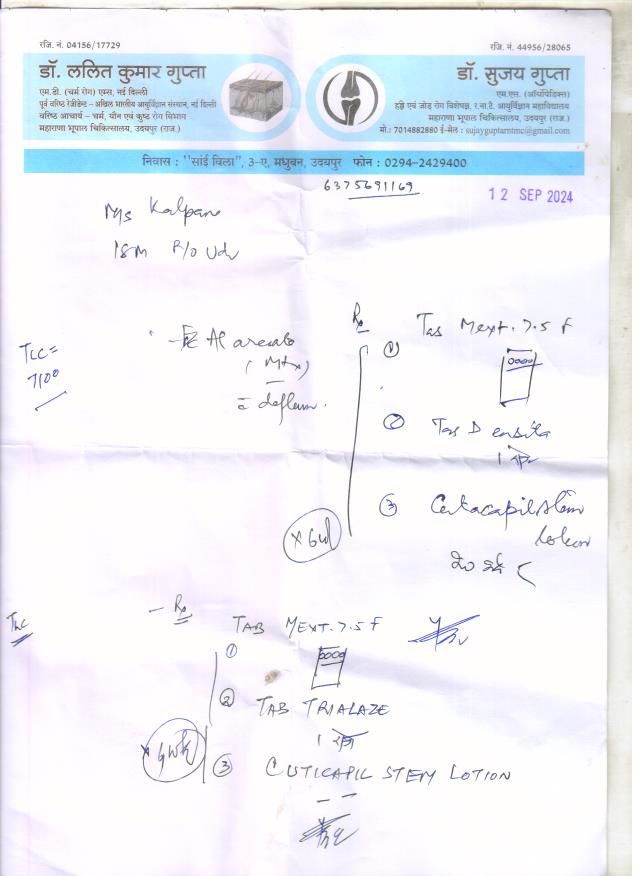 रजि. नं. 04156/17729
डॉ. ललित कुमार गुप्ता
एम.डी. (चर्म रोग) एम्स, नई दिल्ली
पूर्व वरिष्ठ रेजीडेन्ट - अखिल भारतीय आयुर्विज्ञान संस्थान, नई दिल्ली
वरिष्ठ आचार्य - चर्म, यौन एवं कुष्ठ रोग विभाग
महाराणा भूपाल चिकित्सालय, उदयपुर (राज.)
रजि. नं. 44956/28065
डॉ. सुजय गुप्ता
एम.एस. (ऑर्थोपेडिक्स)
हड्डी एवं जोड़ रोग विशेषज्ञ, र.ना.टे. आयुर्विज्ञान महाविद्यालय
महाराणा भूपाल चिकित्सालय, उदयपुर (राज.)
मो.: 7014882880 ई-मेल : sujayguptarntmc@gmail.com
निवास : "सांई विला", 3-ए, मधुबन, उदयपुर फोन : 0294-2429400
6375691169
12 SEP 2024
Ms Kalpana
R/o Udr
TLC =
7100
Al areata
(Mtx)
Rx
① Tab Mext. 7.5 F
② Tab D
③ Cutacapil Stem
lotion
TLC
Rx
① TAB MEXT. 7.5 F
② TAB TRIALAZE
③ CUTICAPIL STEM LOTION